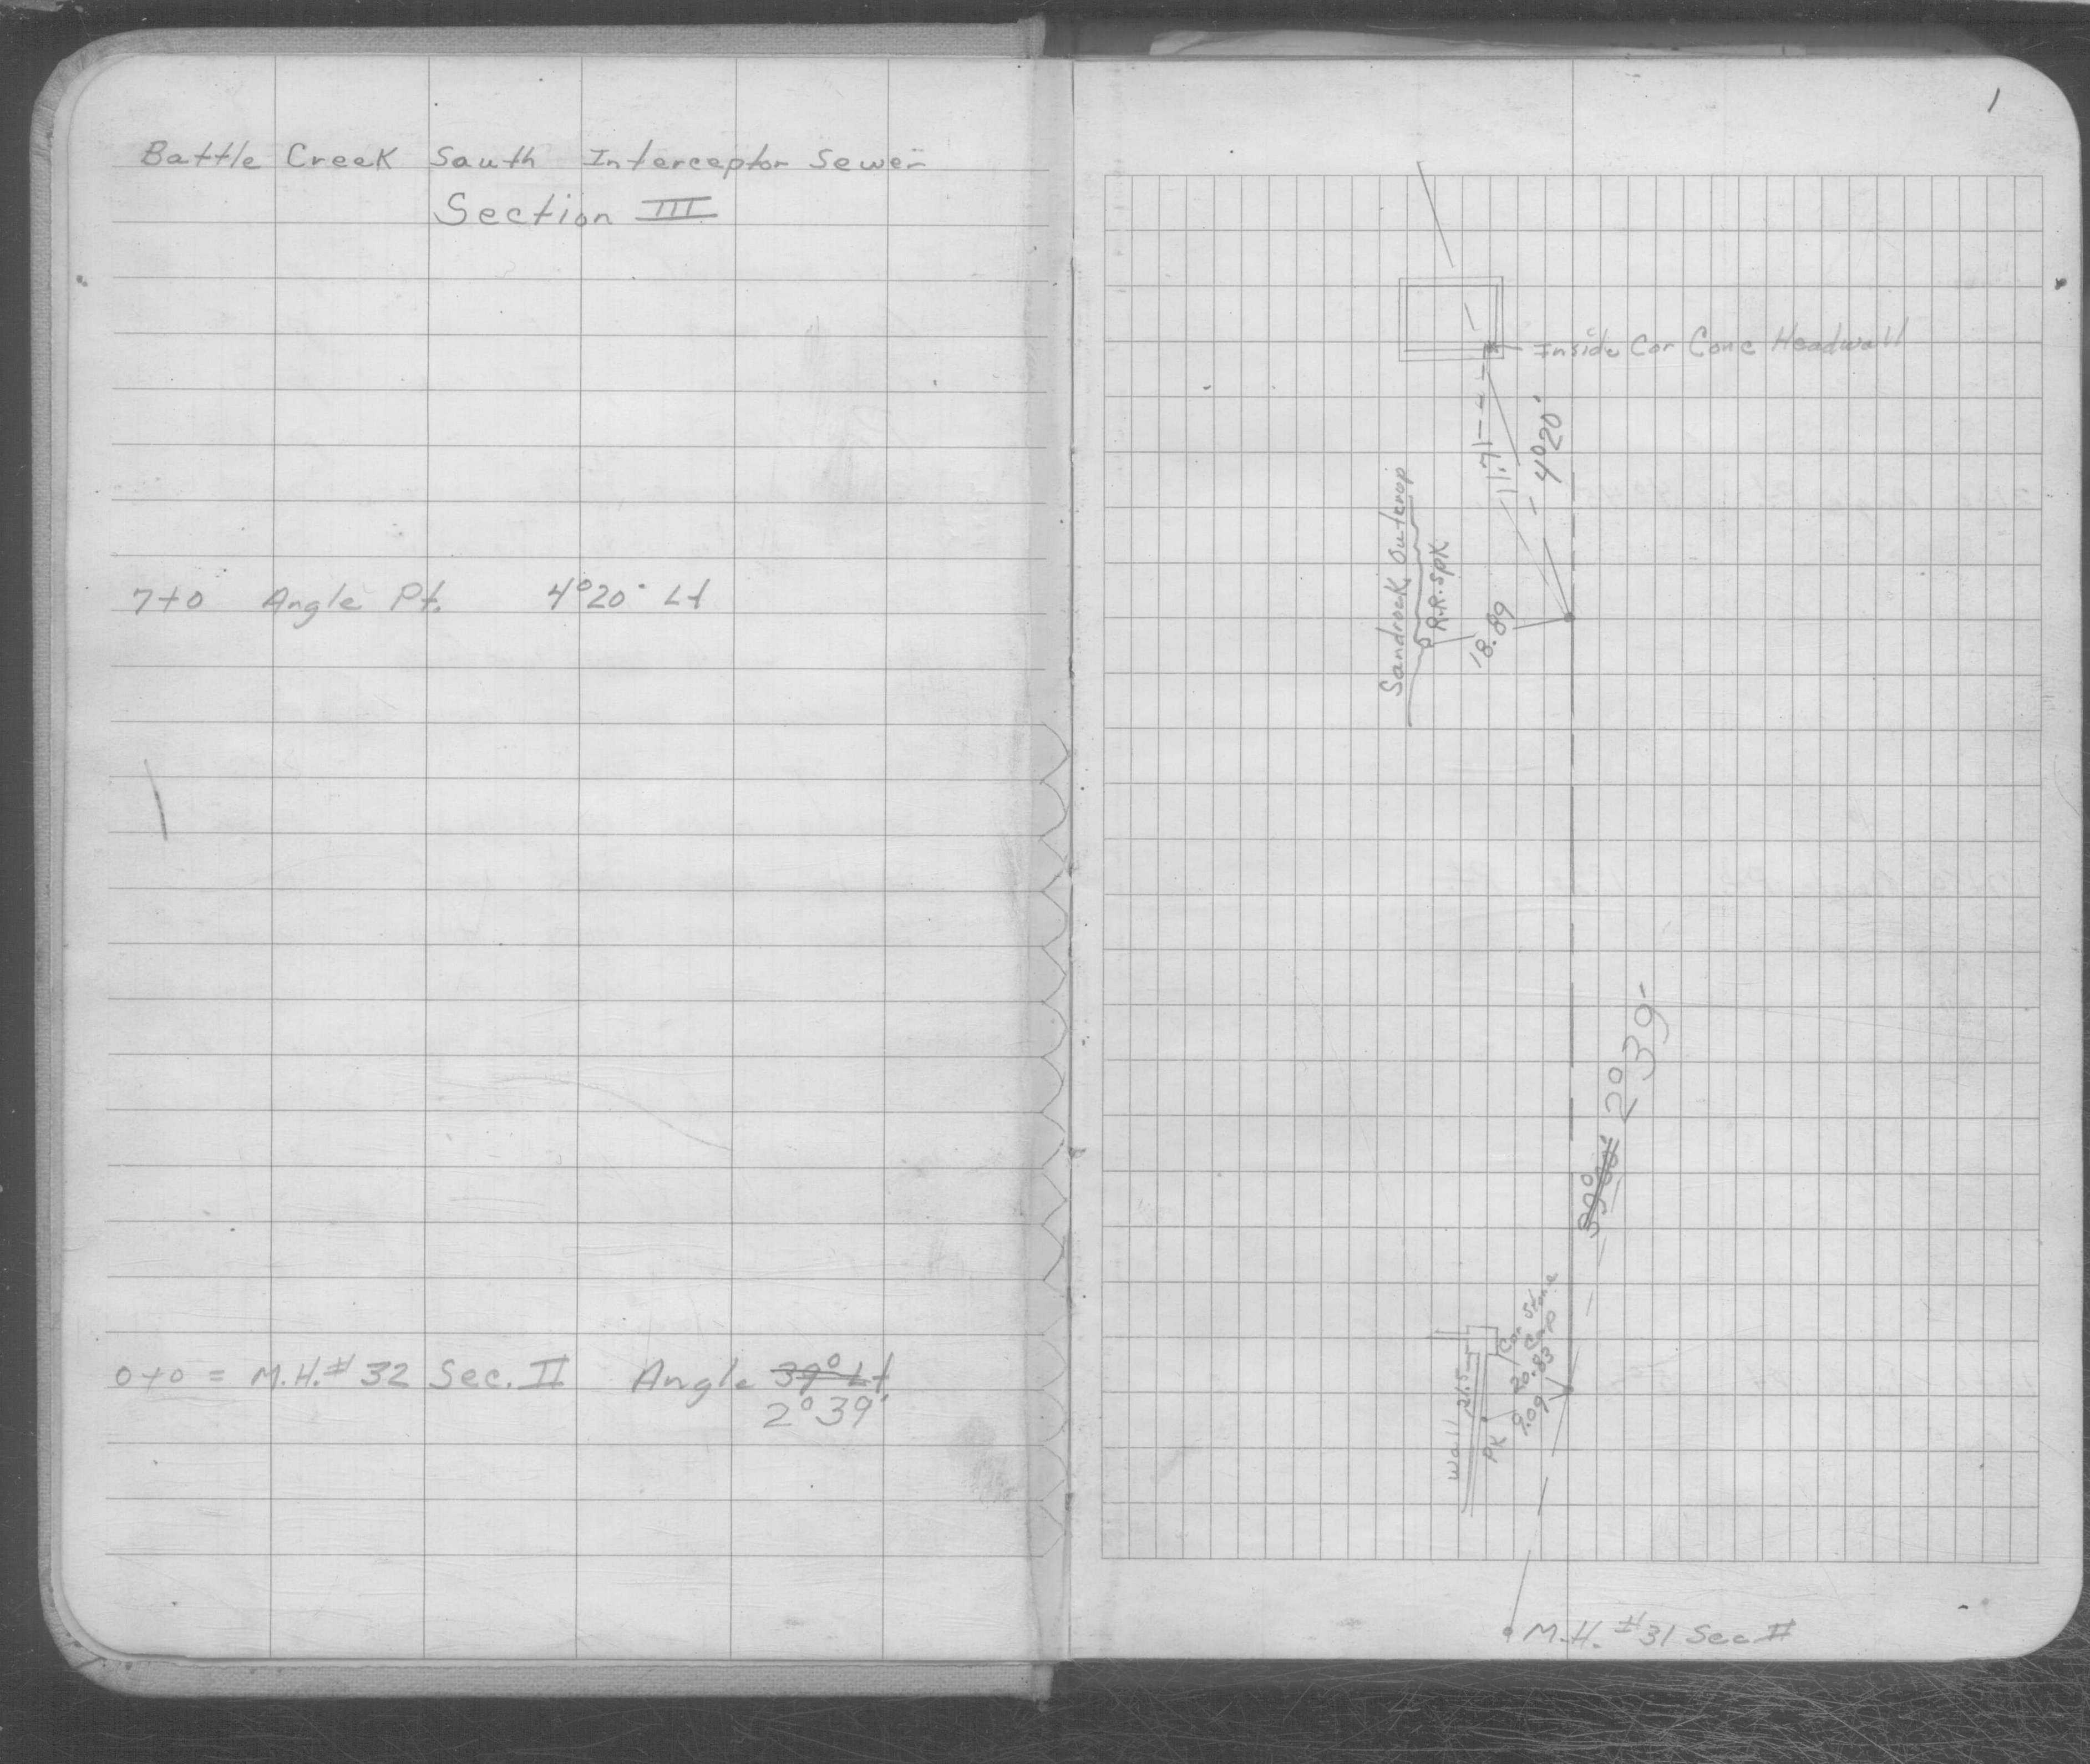 Battle Creek South Interceptor Sewer
Section III
7+0 Angle Pt. 4°20' Lt
0+0 = M.H.# 32 Sec. II Angle 39° Lt
2°39'
1
Inside Cor Conc Headwall
11.71
4°20'
Sandrock Outcrop
R.R. Spk
18.89
2°39'
Cor Stone
Cap
20.83
9.09
21.5
Wall
PK
M.H. #31 Sec II